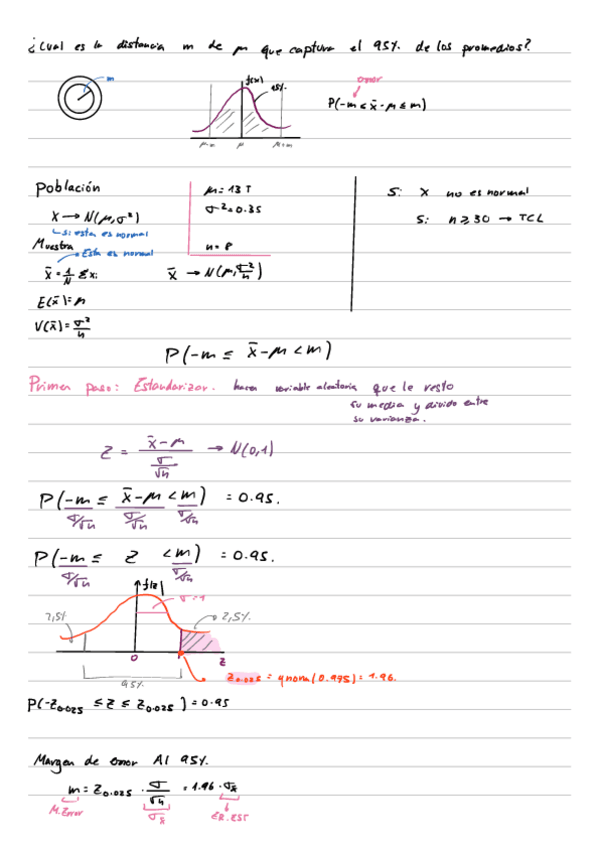 ¿Cual es la distancia m de μ que captura el 95%. de los promedios?
m
f(x)
95%.
error
P(-m ≤ x̄ - μ ≤ m)
μ-m μ μ+m
Población
X → N(μ, σ²)
↳ si esta es normal
Muestra
Esta es normal
x̄ = 1/N Σxi
E(x̄) = μ
V(x̄) = σ²/n
μ = 13 T
σ² = 0.35
n = 8
x̄ → N(μ, σ²/n)
Si X no es normal
Si n ≥ 30 → TCL
P(-m ≤ x̄ - μ < m)
Primer paso: Estandarizar. hacer variable aleatoria que le resto
su media y divido entre
su varianza.
Z = (x̄ - μ)/(σ/√n) → N(0,1)
P(-m/(σ/√n) ≤ (x̄ - μ)/(σ/√n) < m/(σ/√n)) = 0.95.
P(-m/(σ/√n) ≤ Z < m/(σ/√n)) = 0.95.
f(z)
σ=1
2,5%
2,5%.
0
z
95%.
Z0.025 = qnorm(0.975) = 1.96.
P(-Z0.025 ≤ Z ≤ Z0.025) = 0.95
Margen de error Al 95%.
m = Z0.025 · σ/√n = 1.96 · σx̄
M.Error
σx̄
ER.EST